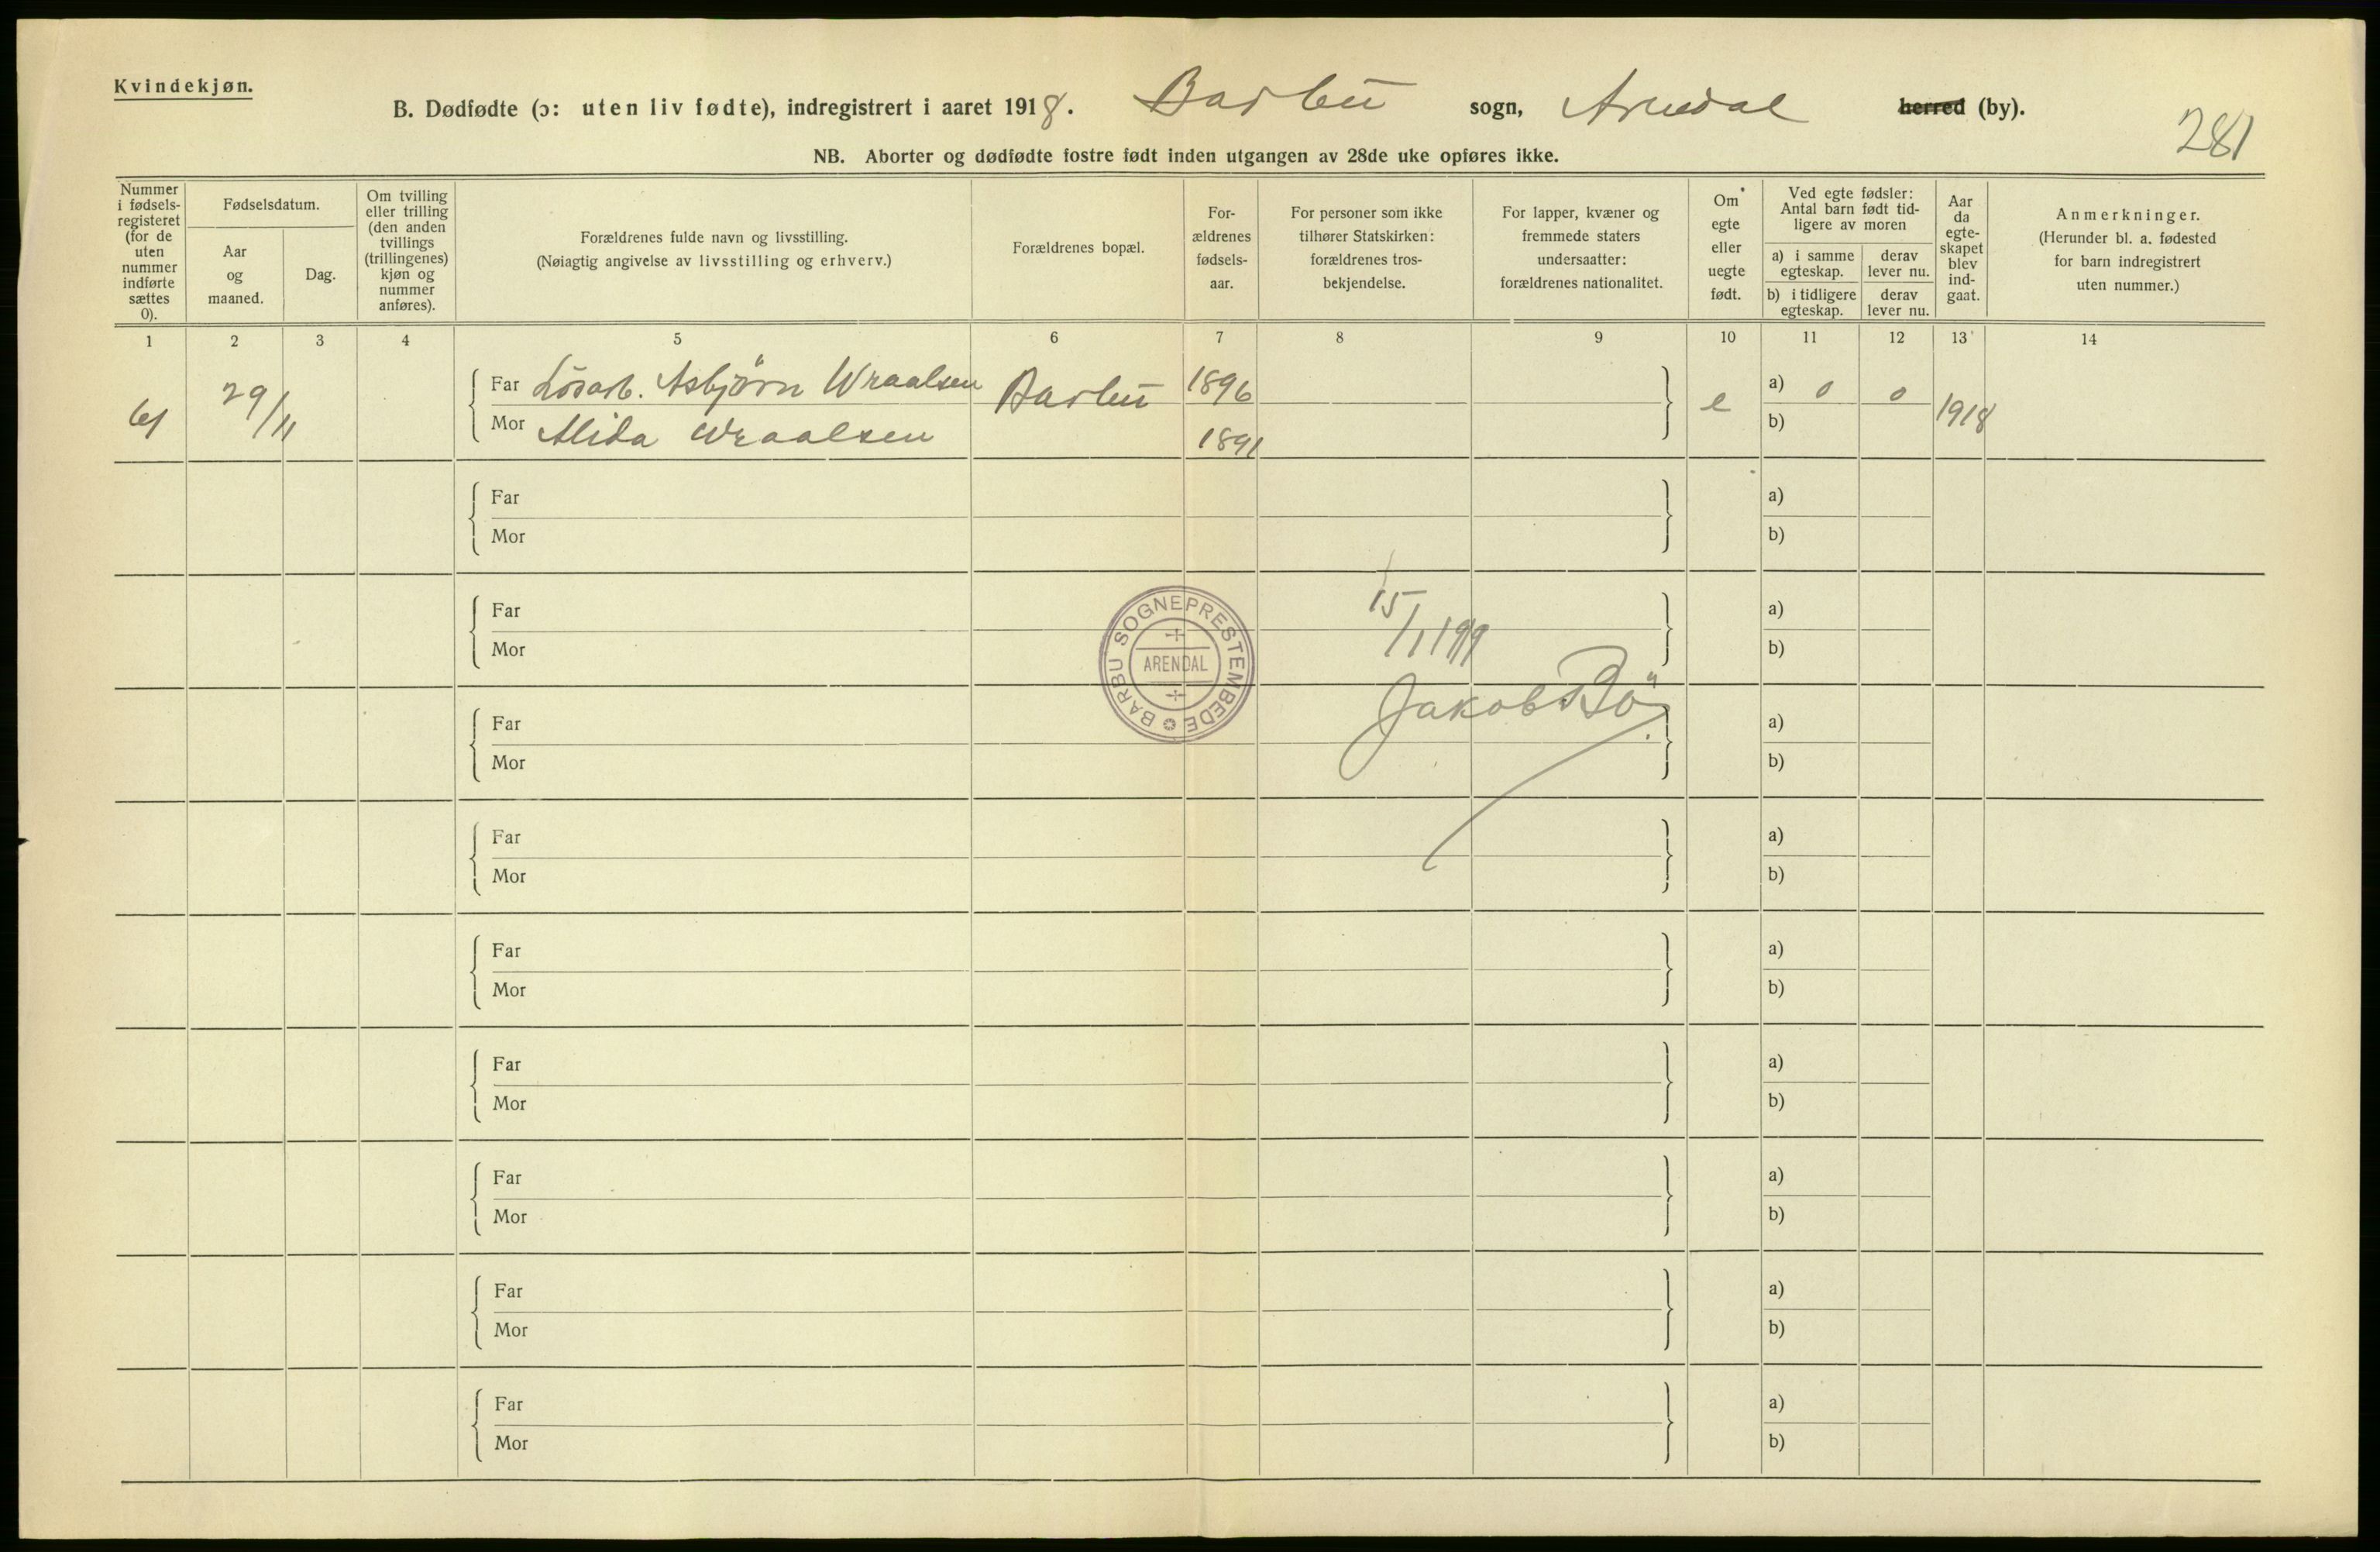 Kvindekjøn.
B. Dødfødte (ɔ: uten liv fødte), indregistrert i aaret 1918. Barbu sogn, Arendal herred (by).
281
NB. Aborter og dødfødte fostre født inden utgangen av 28de uke opføres ikke.
Nummer i fødsels-registeret (for de uten nummer indførte sættes 0).
Fødselsdatum.
Aar og maaned.
Dag.
Om tvilling eller trilling (den anden tvillings (trillingenes) kjøn og nummer anføres).
Forældrenes fulde navn og livsstilling.
(Nøiagtig angivelse av livsstilling og erhverv.)
Forældrenes bopæl.
For-ældrenes fødsels-aar.
For personer som ikke tilhører Statskirken: forældrenes tros-bekjendelse.
For lapper, kvæner og fremmede staters undersaatter: forældrenes nationalitet.
Om egte eller uegte født.
Ved egte fødsler: Antal barn født tid-ligere av moren
a) i samme egteskap.
derav lever nu.
b) i tidligere egteskap.
derav lever nu.
Aar da egte-skapet blev ind-gaat.
Anmerkninger.
(Herunder bl. a. fødested for barn indregistrert uten nummer.)
1 2 3 4 5 6 7 8 9 10 11 12 13 14
61 29/11 Far Lösarb. Asbjörn Wraalsen Barbu 1896 e a) 0 0 1918
Mor Alida Wraalsen 1891 b)
Far a)
Mor b)
Far a)
Mor b)
BARBU SOGNEPRESTEMBEDE
ARENDAL
15/1 1919
Jakob Bö.
Far a)
Mor b)
Far a)
Mor b)
Far a)
Mor b)
Far a)
Mor b)
Far a)
Mor b)
Far a)
Mor b)
Far a)
Mor b)